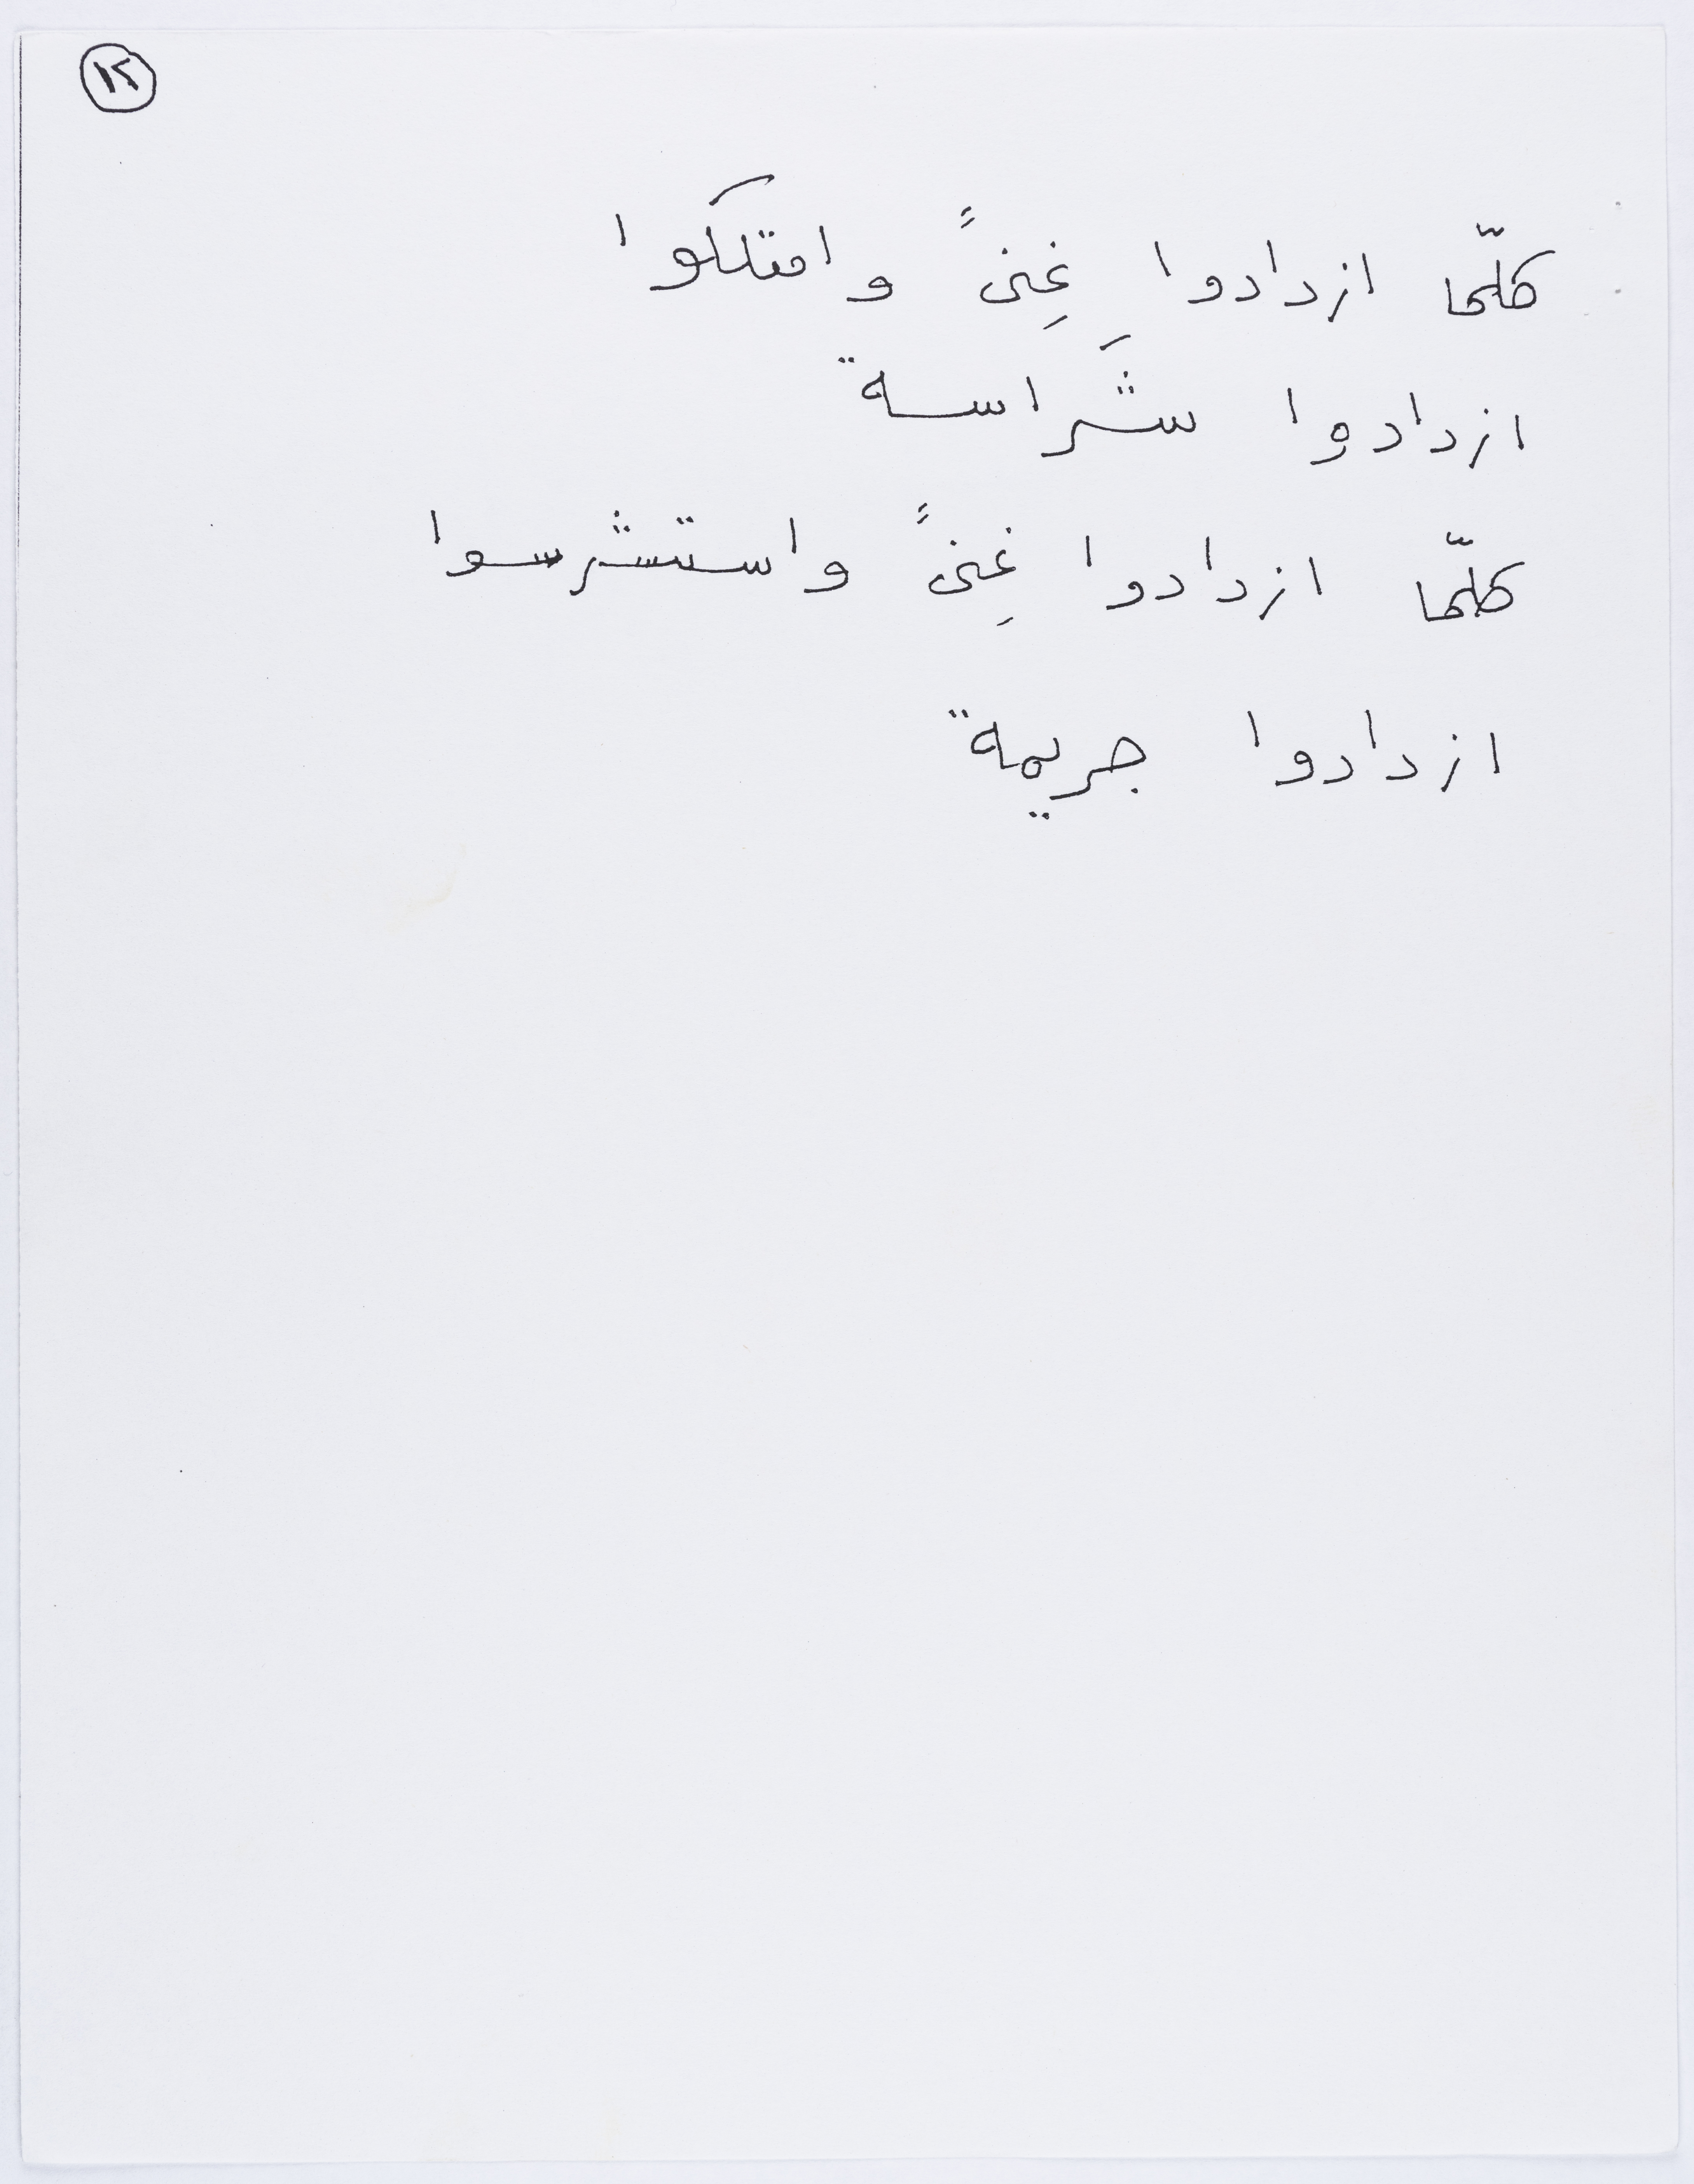 ١٢
كلّما ازدادوا غِنىً وامتلكوا
ازدادوا شَراسة
كلّما ازدادوا غِنىً واستشرسوا
ازدادوا جريمة